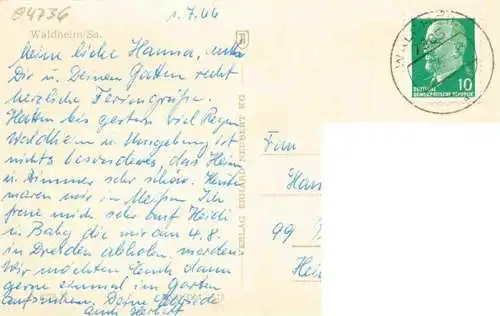 84736
1.7.66
Waldheim/Sa.
Meine liebe Hanna, auch
Dir u. Deinem Gatten recht
herzliche Feriengrüße.
Hatten bis gestern viel Regen
Waldheim u. Umgebung ist
nichts besonderes, das Heim
u. Zimmer sehr schön. Heute
waren wir in Meißen. Ich
freue mich sehr auf Heidi
u. Baby die wir am 4.8.
in Dresden abholen werden.
Wir möchten Euch dann
gerne einmal im Garten
aufsuchen. Deine
auch Herbert
VERLAG ERHARD NEUBERT KG
DEUTSCHE
DEMOKRATISCHE REPUBLIK
10
Frau
Han
99
Hei